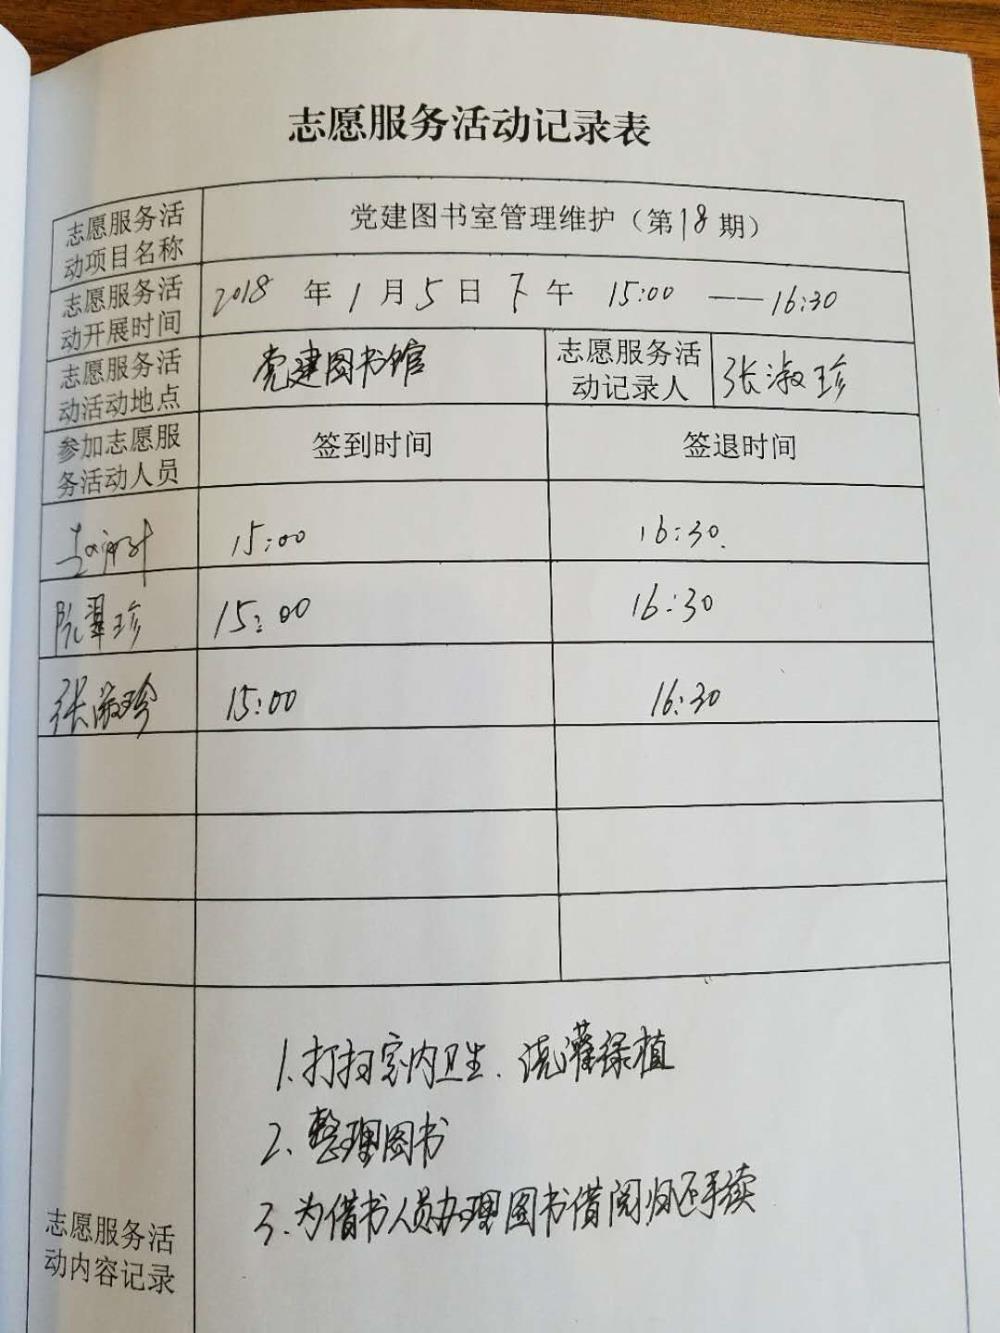 志愿服务活动记录表
志愿服务活
动项目名称
党建图书室管理维护（第18期）
志愿服务活
动开展时间
2018 年 1 月 5 日 下 午 15:00 —— 16:30
志愿服务活
动活动地点
党建图书馆
志愿服务活
动记录人
张淑珍
参加志愿服
务活动人员
签到时间
签退时间
15:00
16:30.
阮翠珍
15:00
16:30
张淑珍
15:00
16:30
志愿服务活
动内容记录
1、打扫室内卫生、浇灌绿植
2、整理图书
3、为借书人员办理图书借阅归还手续